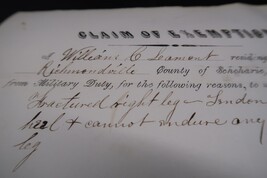 CLAIM OF EXEMPTION
I William C Lamont
Richmondville County of Schoharie
from Military Duty, for the following reasons, to
Fractured right leg –
heel & cannot endure any
leg